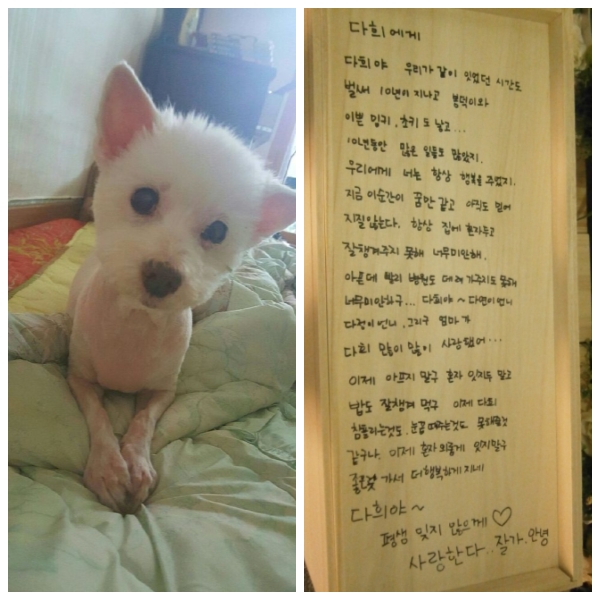 다희에게
다희야 우리가 같이 있었던 시간도
벌써 10년이 지나고 봉덕이와
이쁜 밍키, 쵸키도 낳고...
10년동안 많은 일들도 많았지.
우리에게 너는 항상 행복을 주었지.
지금 이순간이 꿈만 같고 아직도 믿어
지질않는다. 항상 집에 혼자두고
잘챙겨주지 못해 너무미안해.
아픈데 빨리 병원도 데려가주지도 못해
너무미안하구... 다희야~ 다연이언니
다정이언니, 그리구 엄마가
다희 많이 많이 사랑했어...
이제 아프지 말구 혼자 있지두 말고
밥도 잘챙겨 먹구 이제 다희
침흘리는것도, 눈꼽 때우는것도 못해줄것
같구나. 이제 혼자 외롭게 있지말구
좋은곳 가서 더행복하게지내
다희야~
평생 잊지 않으께 ♡
사랑한다.. 잘가. 안녕